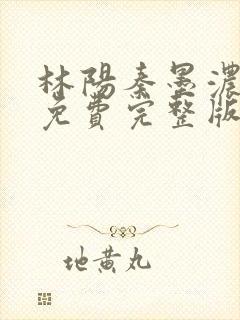 林陽秦墨濃
免費完整版
地黄丸